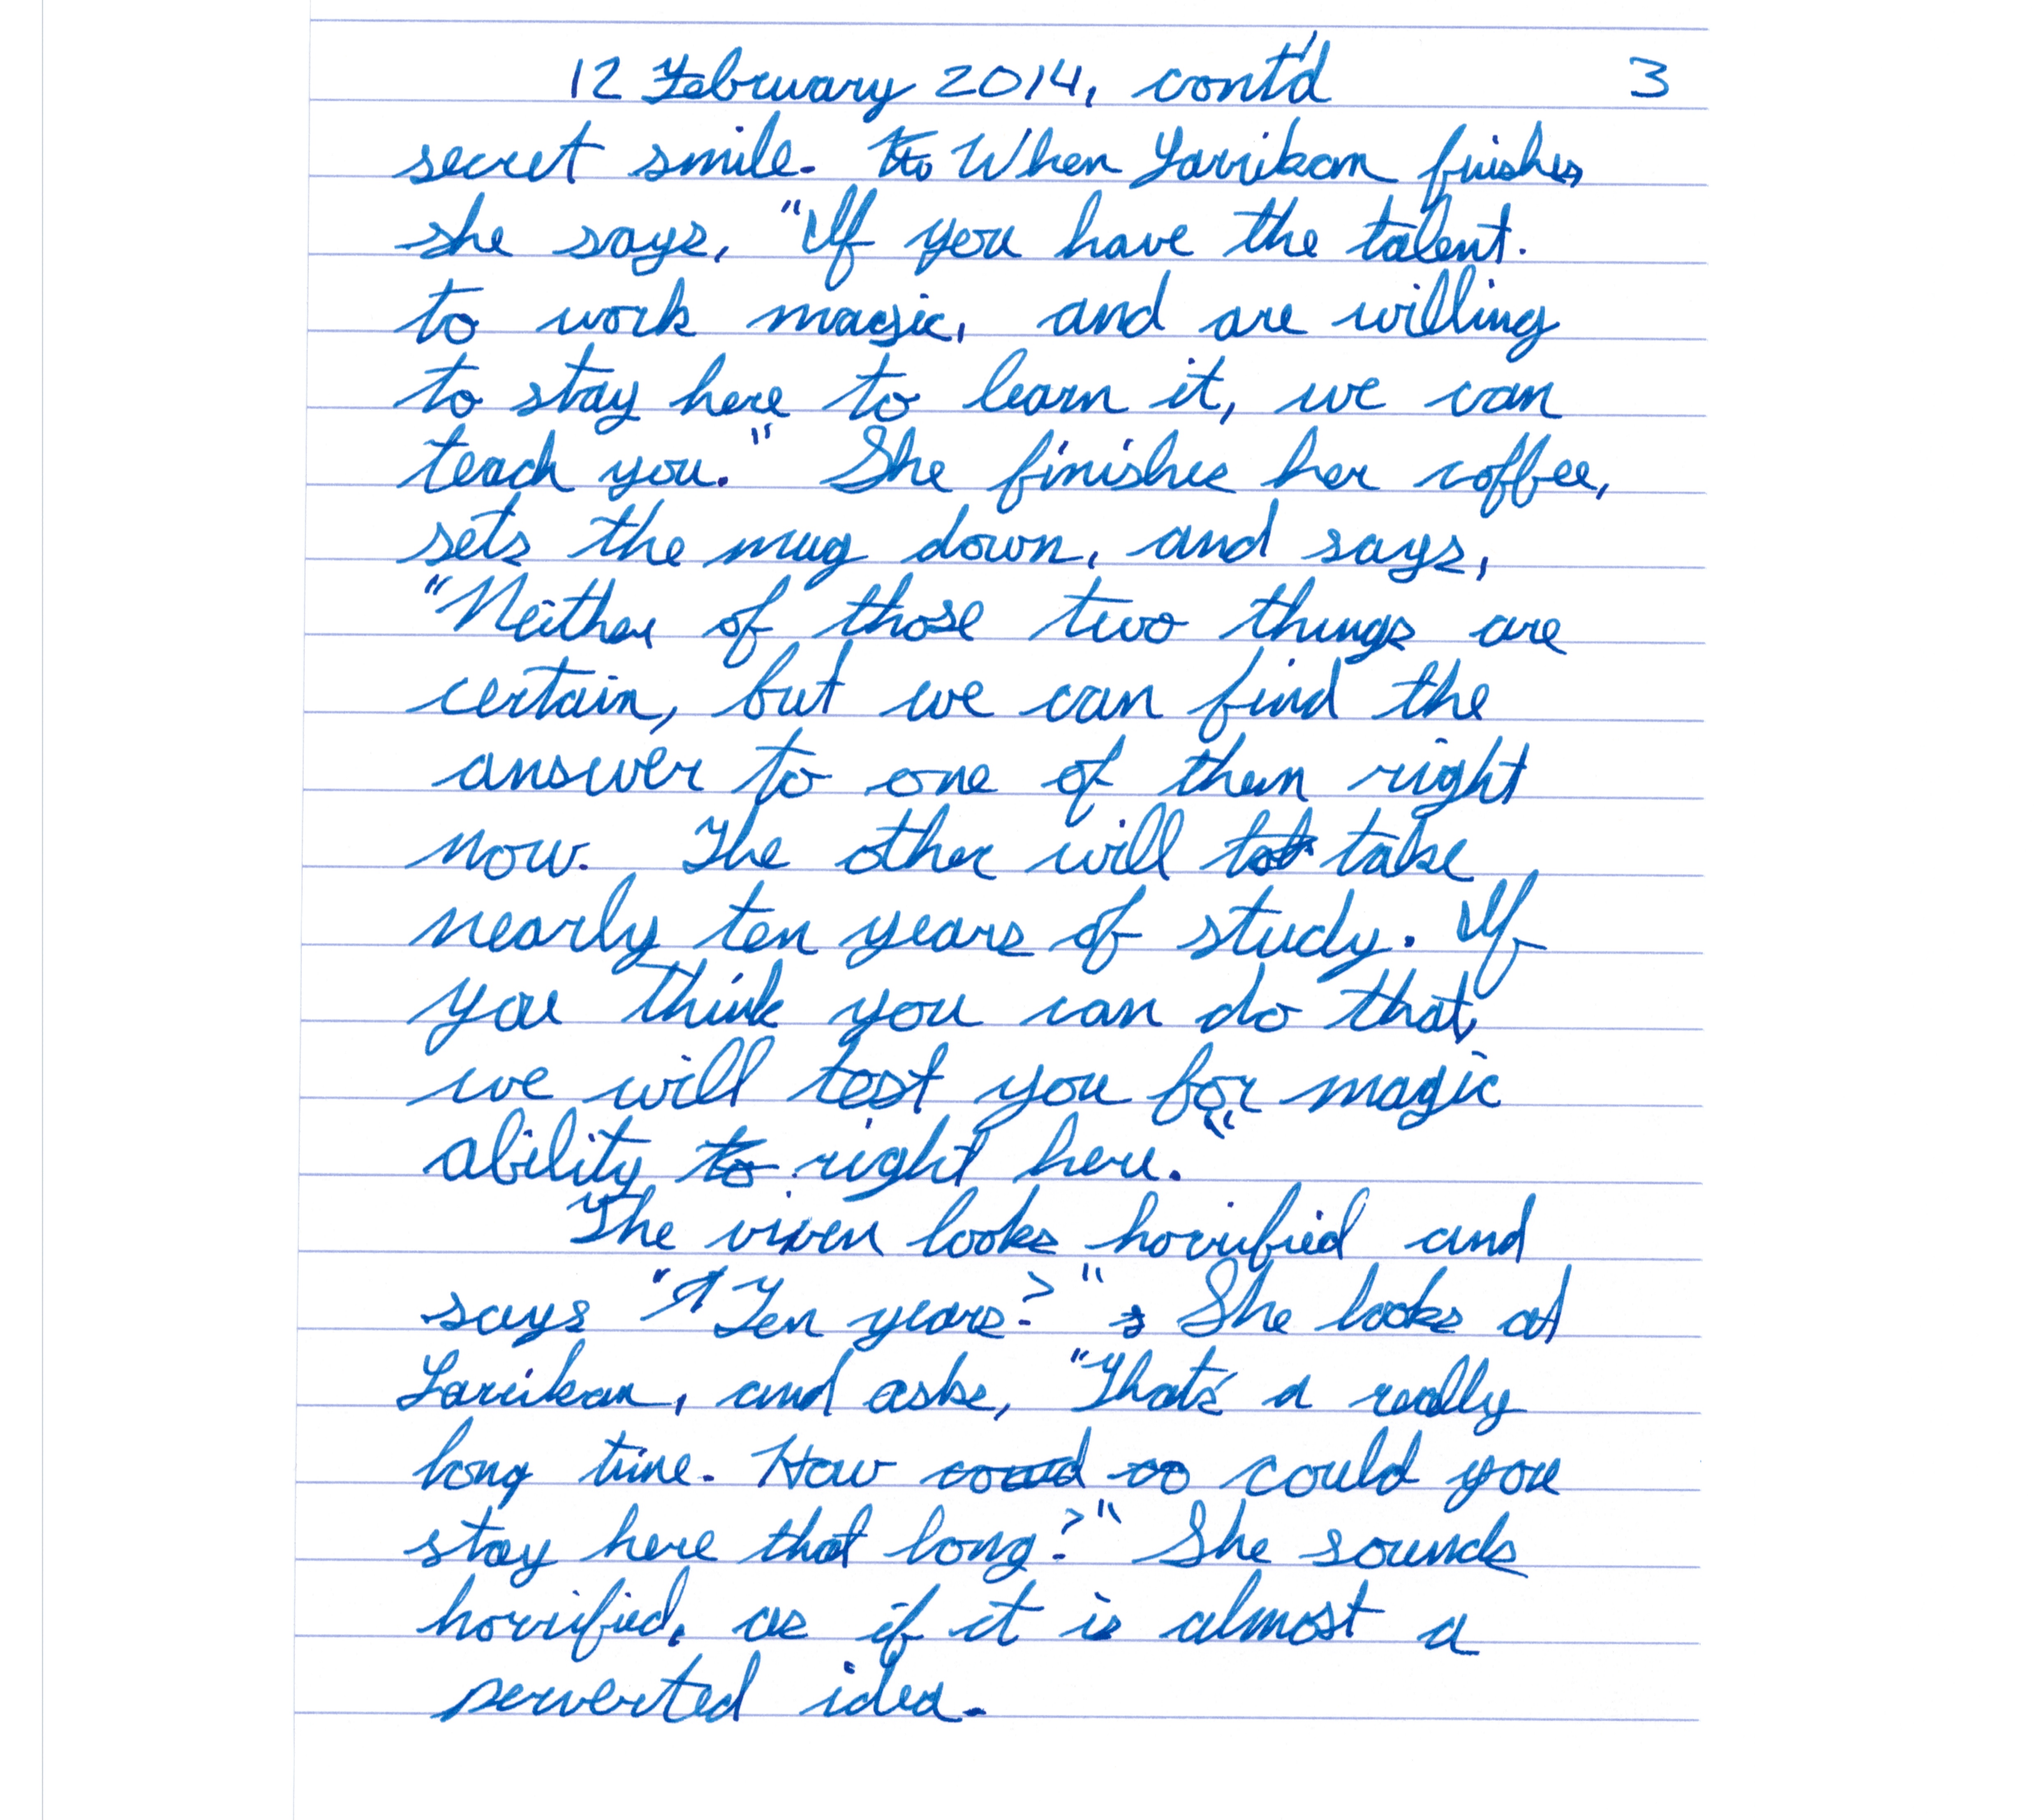 12 February 2014, cont'd 3
secret smile. When Larrikan finishes,
she says, "If you have the talent.
to work magic, and are willing
to stay here to learn it, we can
teach you." She finishes her coffee,
sets the mug down, and says,
"Neither of those two things are
certain, but we can find the
answer to one of them right
now. The other will take
nearly ten years of study. If
you think you can do that,
we will test you for magic
ability to right here."
The vixen looks horrified and
says "Ten years?" She looks at
Larrikan, and asks, "That's a really
long time. How could you
stay here that long?" She sounds
horrified, as if it is almost a
perverted idea.